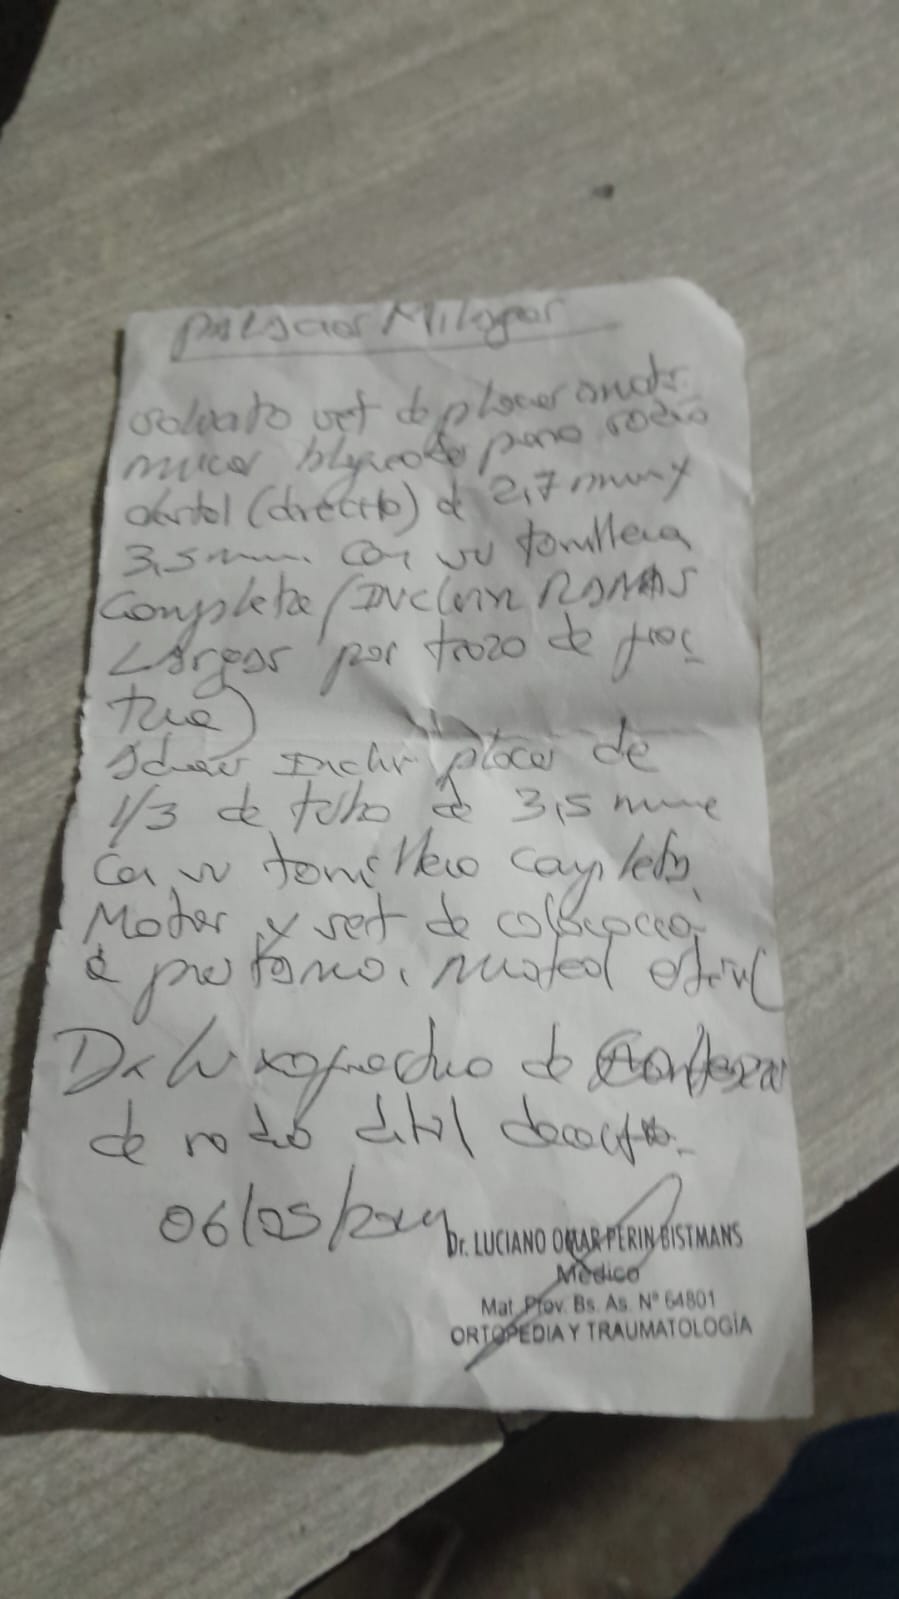 Palacios Milagros
Solicito set de placas anató
micas bloqueadas para radio
distal (derecho) de 2,7 mm y
3,5 mm. con su tornillera
completa (Incluir RAMAS
LARGAS por trazo de frac
tura)
Incluir placas de
1/3 de tubo de 3,5 mm
con su tornillera completa.
Motor y set de colocación.
material estéril
Dx de
de radio distal derecho.
06/05/2024
Dr. LUCIANO OMAR PERIN BISTMANS
Médico
Mat. Prov. Bs. As. N° 64801
ORTOPEDIA Y TRAUMATOLOGÍA